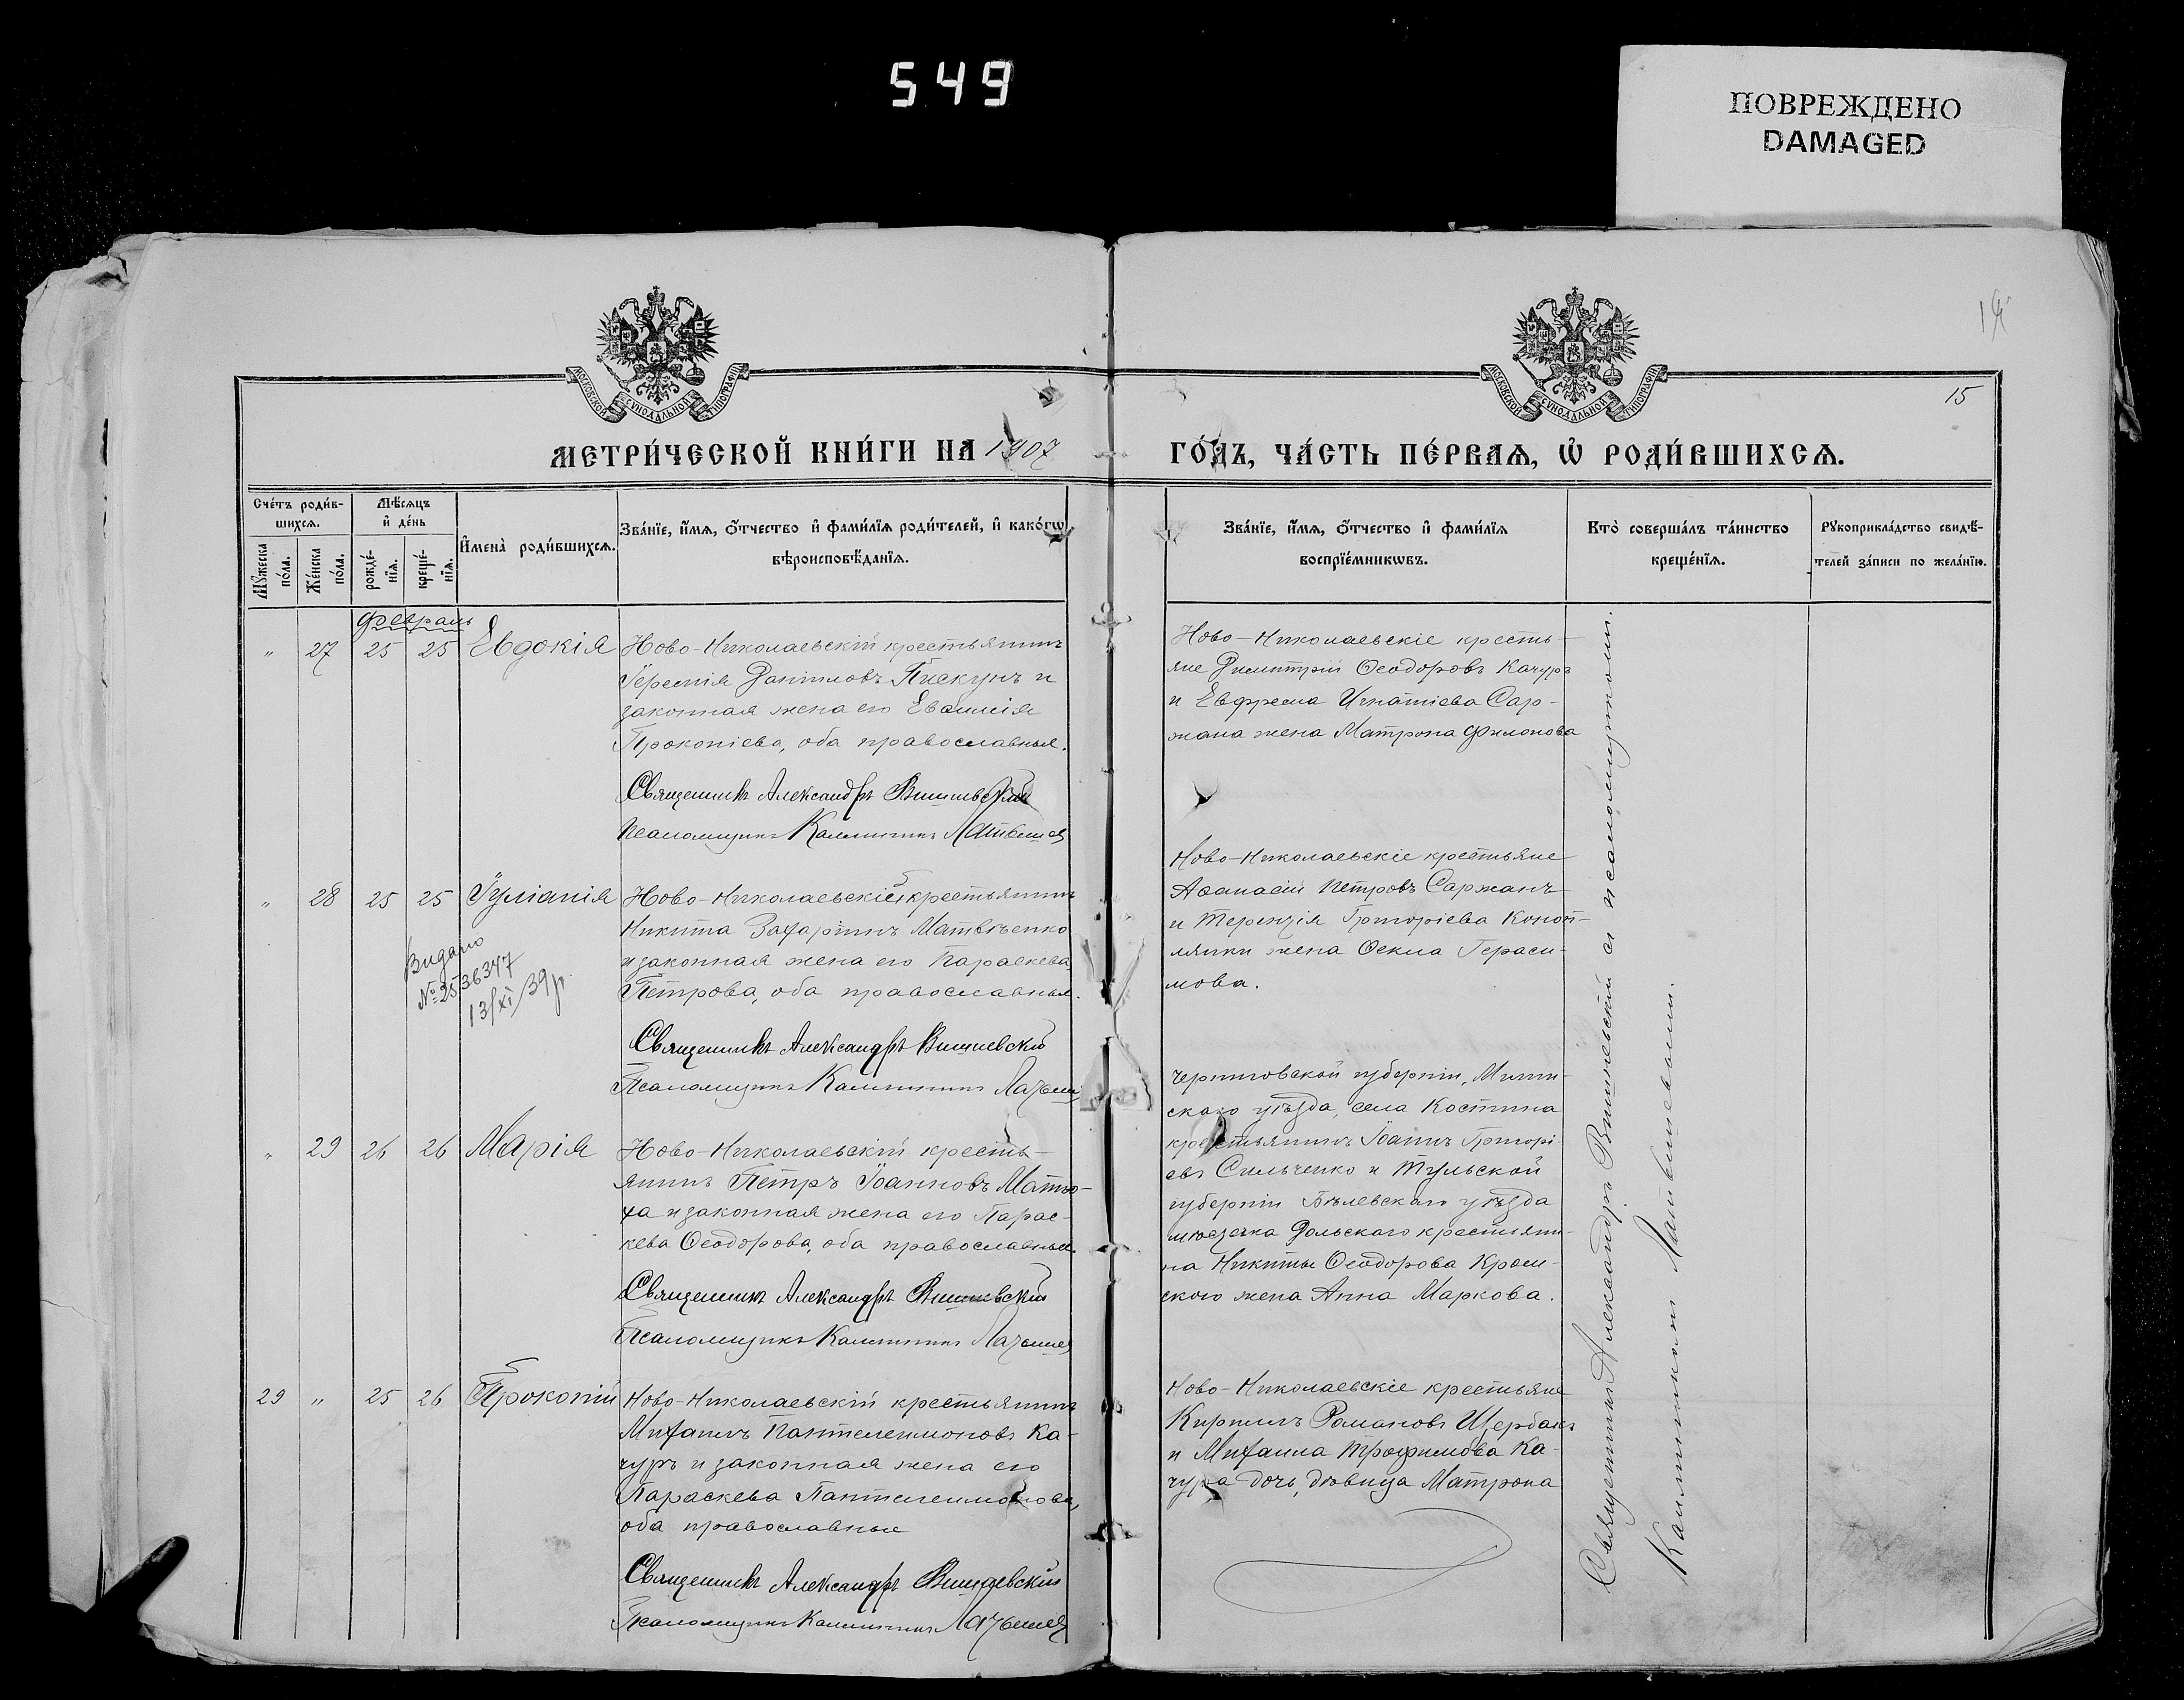 549
ПОВРЕЖДЕНО
DAMAGED
15
МОСКОВСКОЙ СѴНОДАЛЬНОЙ ТИПОГРАФІИ
МОСКОВСКОЙ СѴНОДАЛЬНОЙ ТИПОГРАФІИ
МЕТРИ́ЧЕСКОЙ КНИ́ГИ НА 1907 ГО́ДЪ, ЧА́СТЬ ПЕ́РВАѦ, Ѡ҆ РОДИ́ВШИХСѦ.
Сче́тъ роди́в-
шихсѧ.
Мꙋ́жеска по́ла.
Же́нска по́ла.
Мѣ́сѧцъ
и҆ де́нь
рожде́-
нїѧ.
креще́-
нїѧ.
И҆мена̀ роди́вшихсѧ.
Зва́нїе, и҆́мѧ, ѻ҆́тчество и҆ фами́лїѧ роди́телей, и҆ како́гѡ
вѣроисповѣ́данїѧ.
Зва́нїе, и҆́мѧ, ѻ҆́тчество и҆ фами́лїѧ
воспрїе́мникѡвъ.
Кто̀ соверша́лъ та́инство
креще́нїѧ.
Рꙋкоприкла́дство свидѣ́-
телей за́писи по жела́нїю.
Февраль
" 27 25 25 Евдокія
Ново-Николаевскій крестьянинъ
Іеремія Даніиловъ Пискунъ и
законная жена его Евѳимія
Прокопіева, оба православные.
Священникъ Александръ Вишневскій
Псаломщикъ Каллиникъ Матвѣевъ
Ново-Николаевскіе кресть-
яне Димитрій Ѳеодоровъ Качуръ
и Евфрема Игнатіева Сар-
жана жена Матрона Филонова
" 28 25 25 Іуліанія
Ново-Николаевскій крестьянинъ
Никита Захаріинъ Матвѣенко
и законная жена его Параскева
Петрова, оба православные.
Видано
№ 2536347
13/XI/39 р.
Священникъ Александръ Вишневскій
Псаломщикъ Каллиникъ
Ново-Николаевскіе крестьяне
Аѳанасій Петровъ Саржанъ
и Терентія Григоріева Коноп-
лянки жена Ѳекла Гераси-
мова.
" 29 26 26 Марія
Ново-Николаевскій кресть-
янинъ Петръ Іоанновъ Матю-
ха и законная жена его Парас-
кева Ѳеодорова, оба православные.
Священникъ Александръ Вишневскій
Псаломщикъ Каллиникъ
Черниговской губерніи, Мглин-
скаго уѣзда, села Костина
крестьянинъ Іоаннъ Григорі-
евъ Сильченко и Тульской
губерніи Бѣлевскаго уѣзда
мѣстечка Дольскаго крестьяни-
на Никиты Ѳеодорова
жена Анна Маркова.
29 " 25 26 Прокопій
Ново-Николаевскій крестьянинъ
Михаилъ Пантелеимоновъ Ка-
чуръ и законная жена его
Параскева Пантелеимонова,
оба православные
Священникъ Александръ Вишневскій
Псаломщикъ Каллиникъ
Ново-Николаевскіе крестьяне
Кириллъ Романовъ Щербакъ
и Михаила Трофимова Ка-
чура дочь, дѣвица Матрона
Священникъ Александръ Вишневскій съ псаломщикомъ
Каллиникомъ Матвѣевымъ.